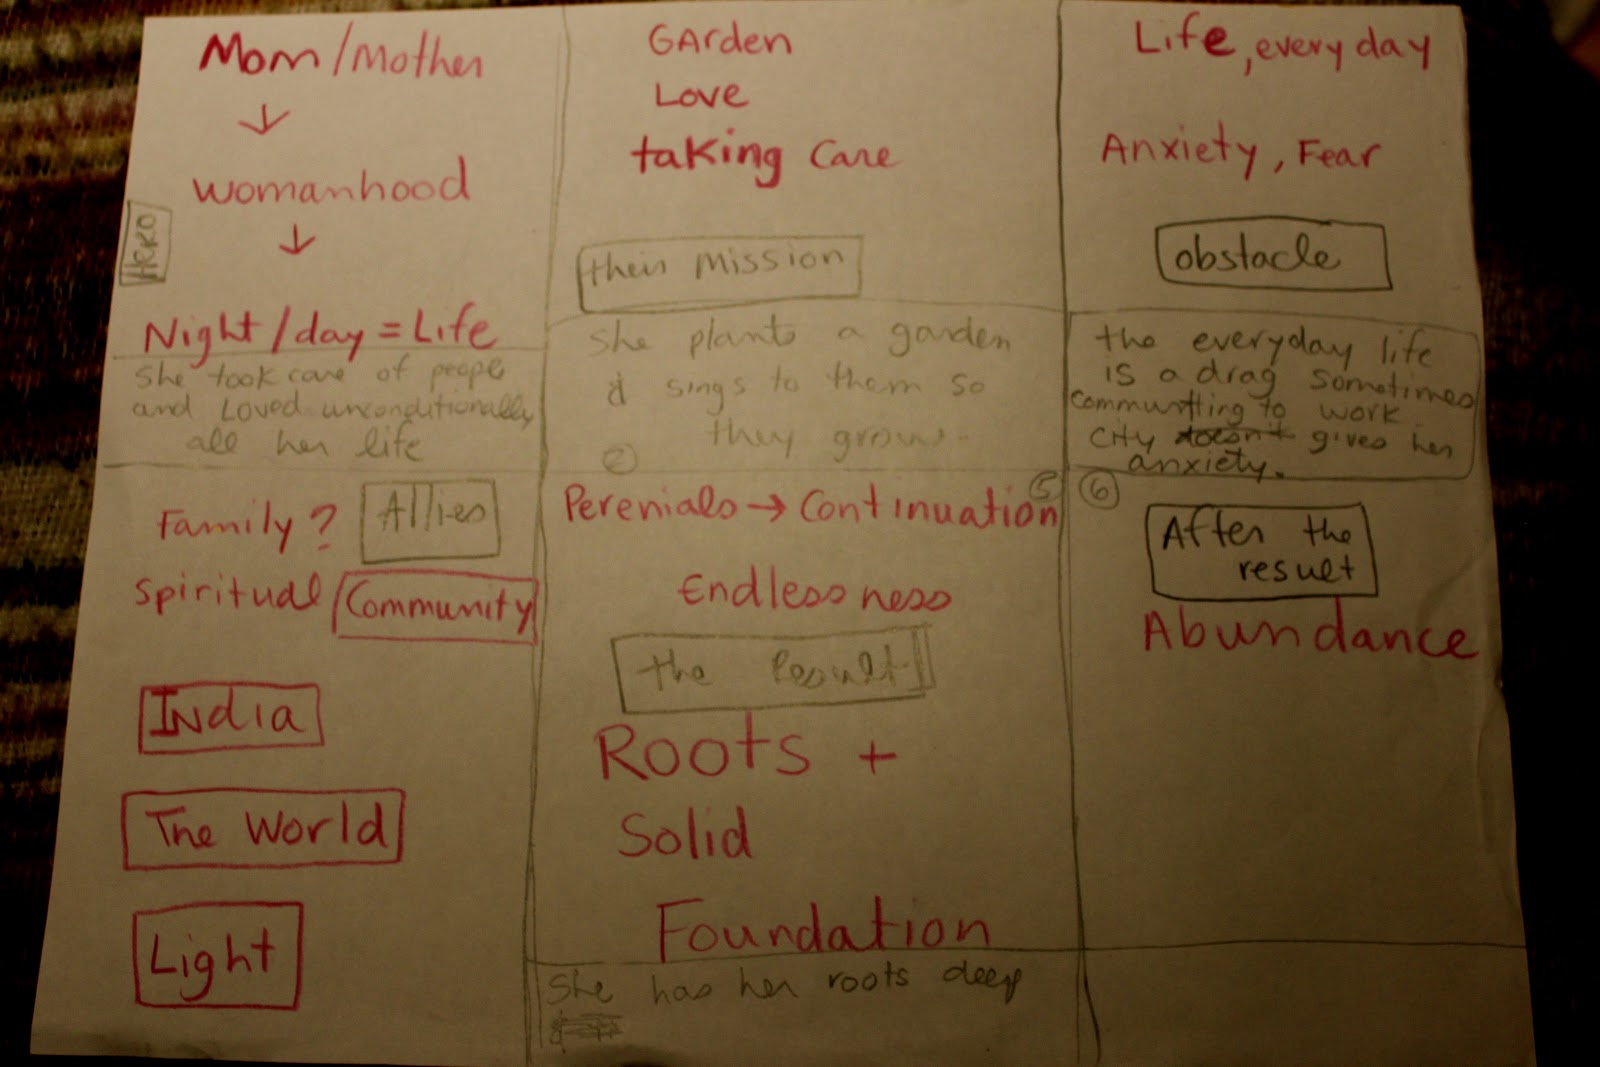 Mom/Mother
↓
womanhood
↓
Hero
Night/day = Life
She took care of peopl
and Loved unconditionally
all her life
Garden
Love
taking care
their mission
She plants a garden
& sings to them so
they grow.
②
Life, every day
Anxiety, Fear
obstacle
the everyday life
is a drag sometimes
communtting to work
city doesn't gives her
anxiety.
Family? Allies
spiritual Community
India
The World
Light
5
Perenials → Continuation
Endlessness
the Result
Roots +
Solid
Foundation
She has her roots deep
6
After the
result
Abundance